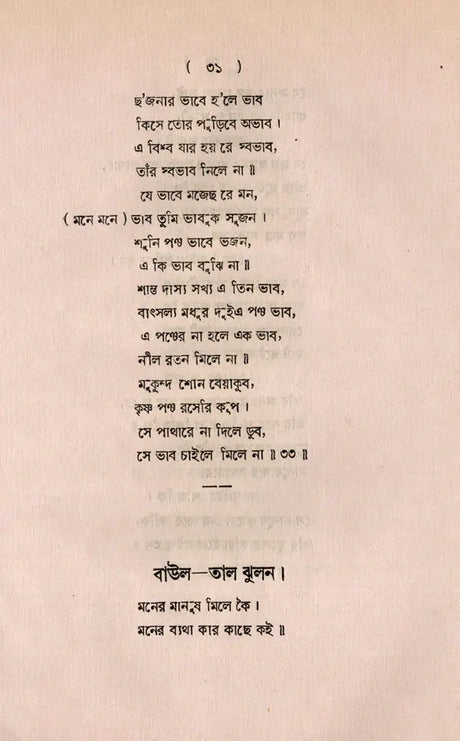 ( ৩১ )
ছ'জনার ভাবে হ'লে ভাব
কিসে তোর পুড়িবে অভাব ।
এ বিশ্ব যার হয় রে স্বভাব,
তাঁর স্বভাব নিলে না ॥
যে ভাবে মজেছ রে মন,
( মনে মনে ) ভাব তুমি ভাবুক সুজন ।
শুনি পঞ্চ ভাবে ভজন,
এ কি ভাব বুঝি না ॥
শান্ত দাস্য সখ্য এ তিন ভাব,
বাৎসল্য মধুর দুইএ পঞ্চ ভাব,
এ পঞ্চের না হলে এক ভাব,
নীল রতন মিলে না ॥
মুকুন্দ শোন বেয়াকুব,
কৃষ্ণ পঞ্চ রসের কূপ ।
সে পাথারে না দিলে ডুব,
সে ভাব চাইলে মিলে না ॥ ৩৩ ॥
বাউল—তাল ঝুলন ।
মনের মানুষ মিলে কৈ ।
মনের ব্যথা কার কাছে কই ॥